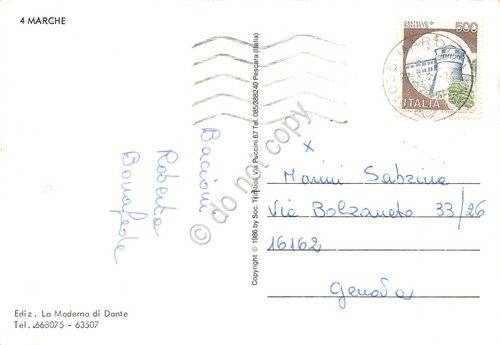 4 MARCHE
CASTELLO DI
ROVERETO
500
ITALIA
Bacioni
Roberta
Bonafede
Copyright © 1986 by Soc. Trimboli Via Puccini 67 Tel. 085/388240 Pescara (Italia)
x
Manni Sabrina
Via Bolzaneto 33/26
16162
Genova
Ediz. La Moderna di Dante
Tel. 668075 - 63507
© do not copy